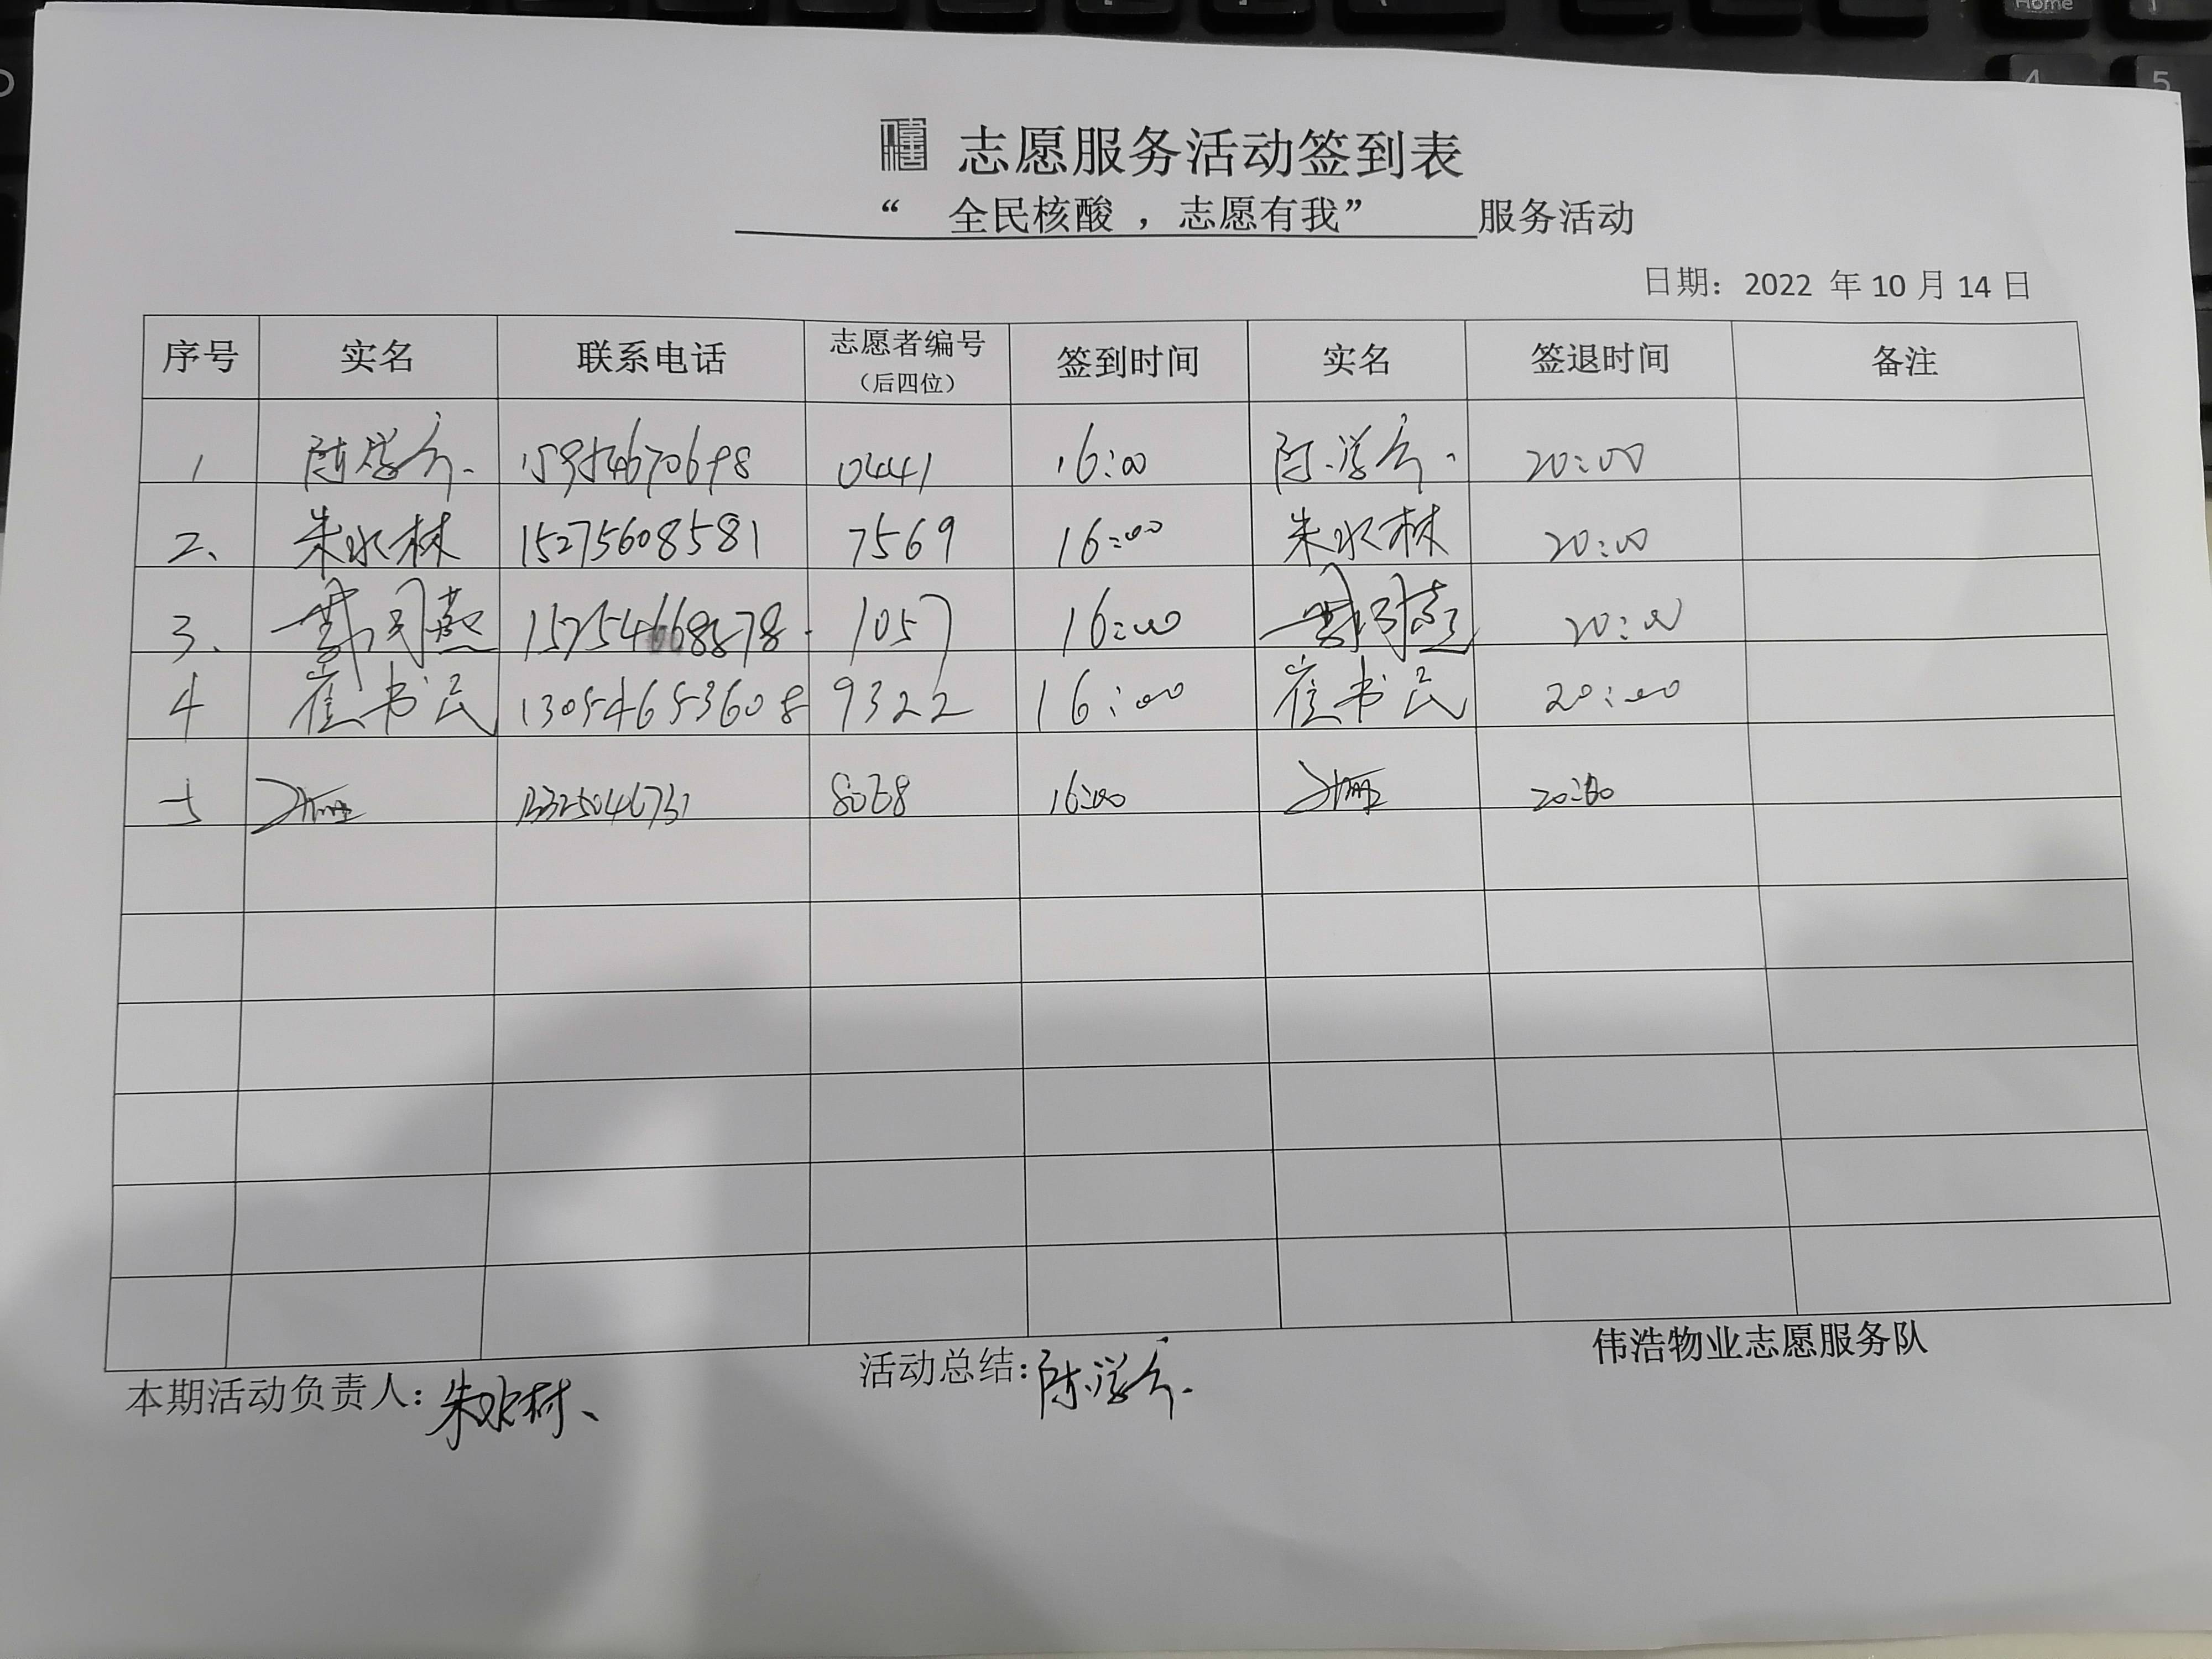 志愿服务活动签到表
“ 全民核酸 ，志愿有我” 服务活动
日期：2022 年 10 月 14 日
序号 实名 联系电话 志愿者编号（后四位） 签到时间 实名 签退时间 备注
1 0441 16:00 20:00
2、 朱水林 15275608581 7569 16:00 朱水林 20:00
3、 1057 16:00 20:00
4 崔书民 13054653608 9322 16:00 崔书民 20:00
5 16:00 20:00
伟浩物业志愿服务队
本期活动负责人：朱水林、 活动总结：
Home
4 5